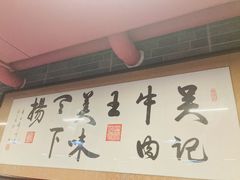 吴记
牛肉
王
美味
天下
揚